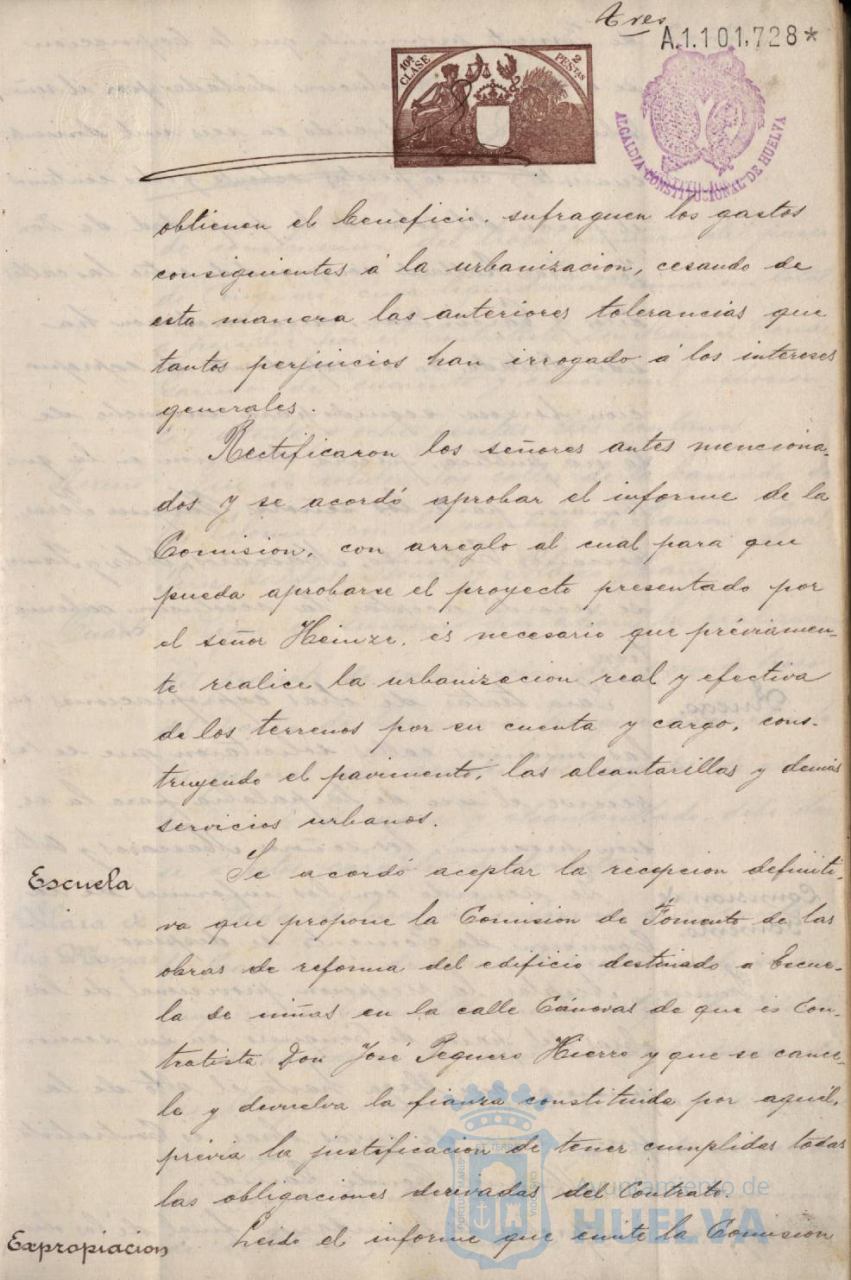 Tres
A.1.101.728*
10ª CLASE
2 PESTAS
ALCALDIA CONSTITUCIONAL DE HUELVA
obtienen el beneficio, sufraguen los gastos
consiguientes á la urbanizacion, cesando de
esta manera las anteriores tolerancias que
tantos perjuicios han irrogado á los intereses
generales.
Rectificaron los señores antes menciona-
dos y se acordó aprobar el informe de la
Comision, con arreglo al cual para que
pueda aprobarse el proyecto presentado por
el señor Heinze, és necesario que préviamen-
te realice la urbanizacion real y efectiva
de los terrenos por su cuenta y cargo, cons-
truyendo el pavimento, las alcantarillas y demás
servicios urbanos.
Escuela
Se acordó aceptar la recepcion definiti-
va que propone la Comision de Fomento de las
obras de reforma del edificio destinado á Escue-
la de niñas en la calle Cánovas de que és Con-
tratista Don José Peguero Hierro y que se cance-
le y devuelva la fianza constituida por aquél,
prévia la justificacion de tener cumplidas todas
las obligaciones derivadas del Contrato.
Expropiacion
Leido el informe que emite la Comision
Ayuntamiento de
HUELVA